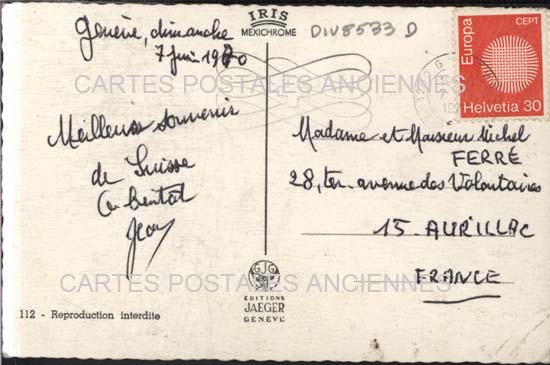 IRIS
MEXICHROME
DIV8533 D
Genève, dimanche
7 juin 1970
Europa
CEPT
Helvetia 30
CARTES POSTALES ANCIENNES
Meilleurs souvenirs
de Suisse
A bientôt
Jean
Madame et Monsieur Michel
FERRÉ
28, ter. avenue des Volontaires
15 - AURILLAC
FRANCE
CARTES POSTALES ANCIENNES
EDITIONS
JAEGER
GENÈVE
112 - Reproduction interdite